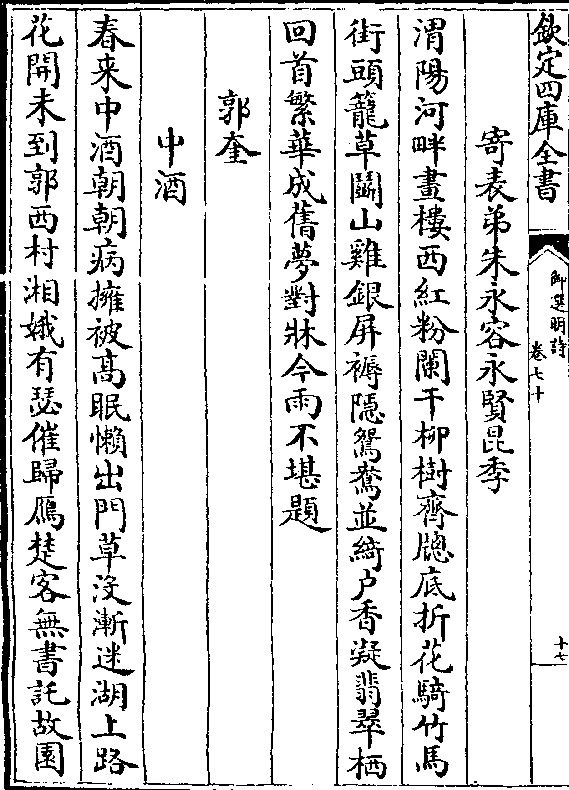 欽定四庫全書
御選明詩
卷七十
十七
寄表弟朱永容永賢昆季
渭陽河畔畫樓西紅粉闌干柳樹齊牕底折花騎竹馬
街頭籠草鬬山雞銀屏褥隱鴛鴦並綺户香凝翡翠栖
回首繁華成舊夢對牀今雨不堪題
郭奎
中酒
春来中酒朝朝病擁被髙眠懶出門草沒漸迷湖上路
花開未到郭西村湘娥有瑟催歸鴈楚客無書託故園